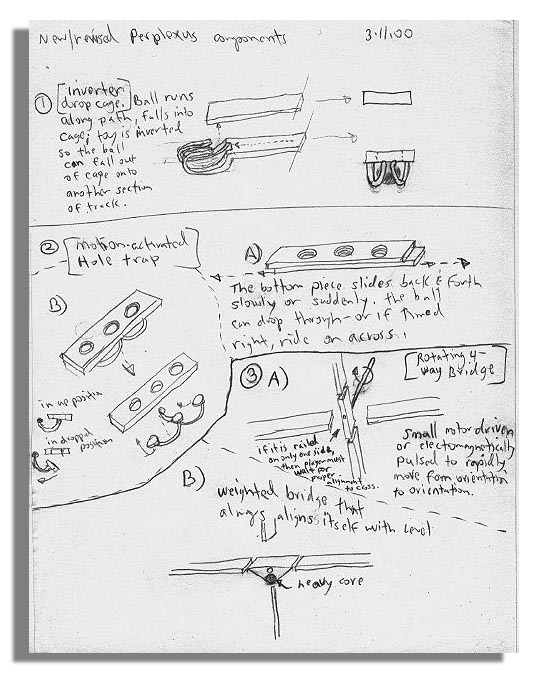 New/revised Perplexus components
3/1/00
① [inverter
drop cage.] Ball runs
along path, falls into
cage; toy is inverted
so the ball
can fall out
of cage onto
another section
of track.
② [Motion-activated
Hole trap]
A)
The bottom piece slides back & forth
slowly or suddenly. the ball
can drop through - or if timed
right, ride on across.
B)
in up position
in dropped
position
③ A)
[Rotating 4-
way Bridge]
if it is railed
on only one side,
then player must
wait for
proper
alignment
to cross.
Small motor driven
or electromagnetically
pulsed to rapidly
move from orientation
to orientation.
B)
weighted bridge that
always aligns itself with level
heavy core